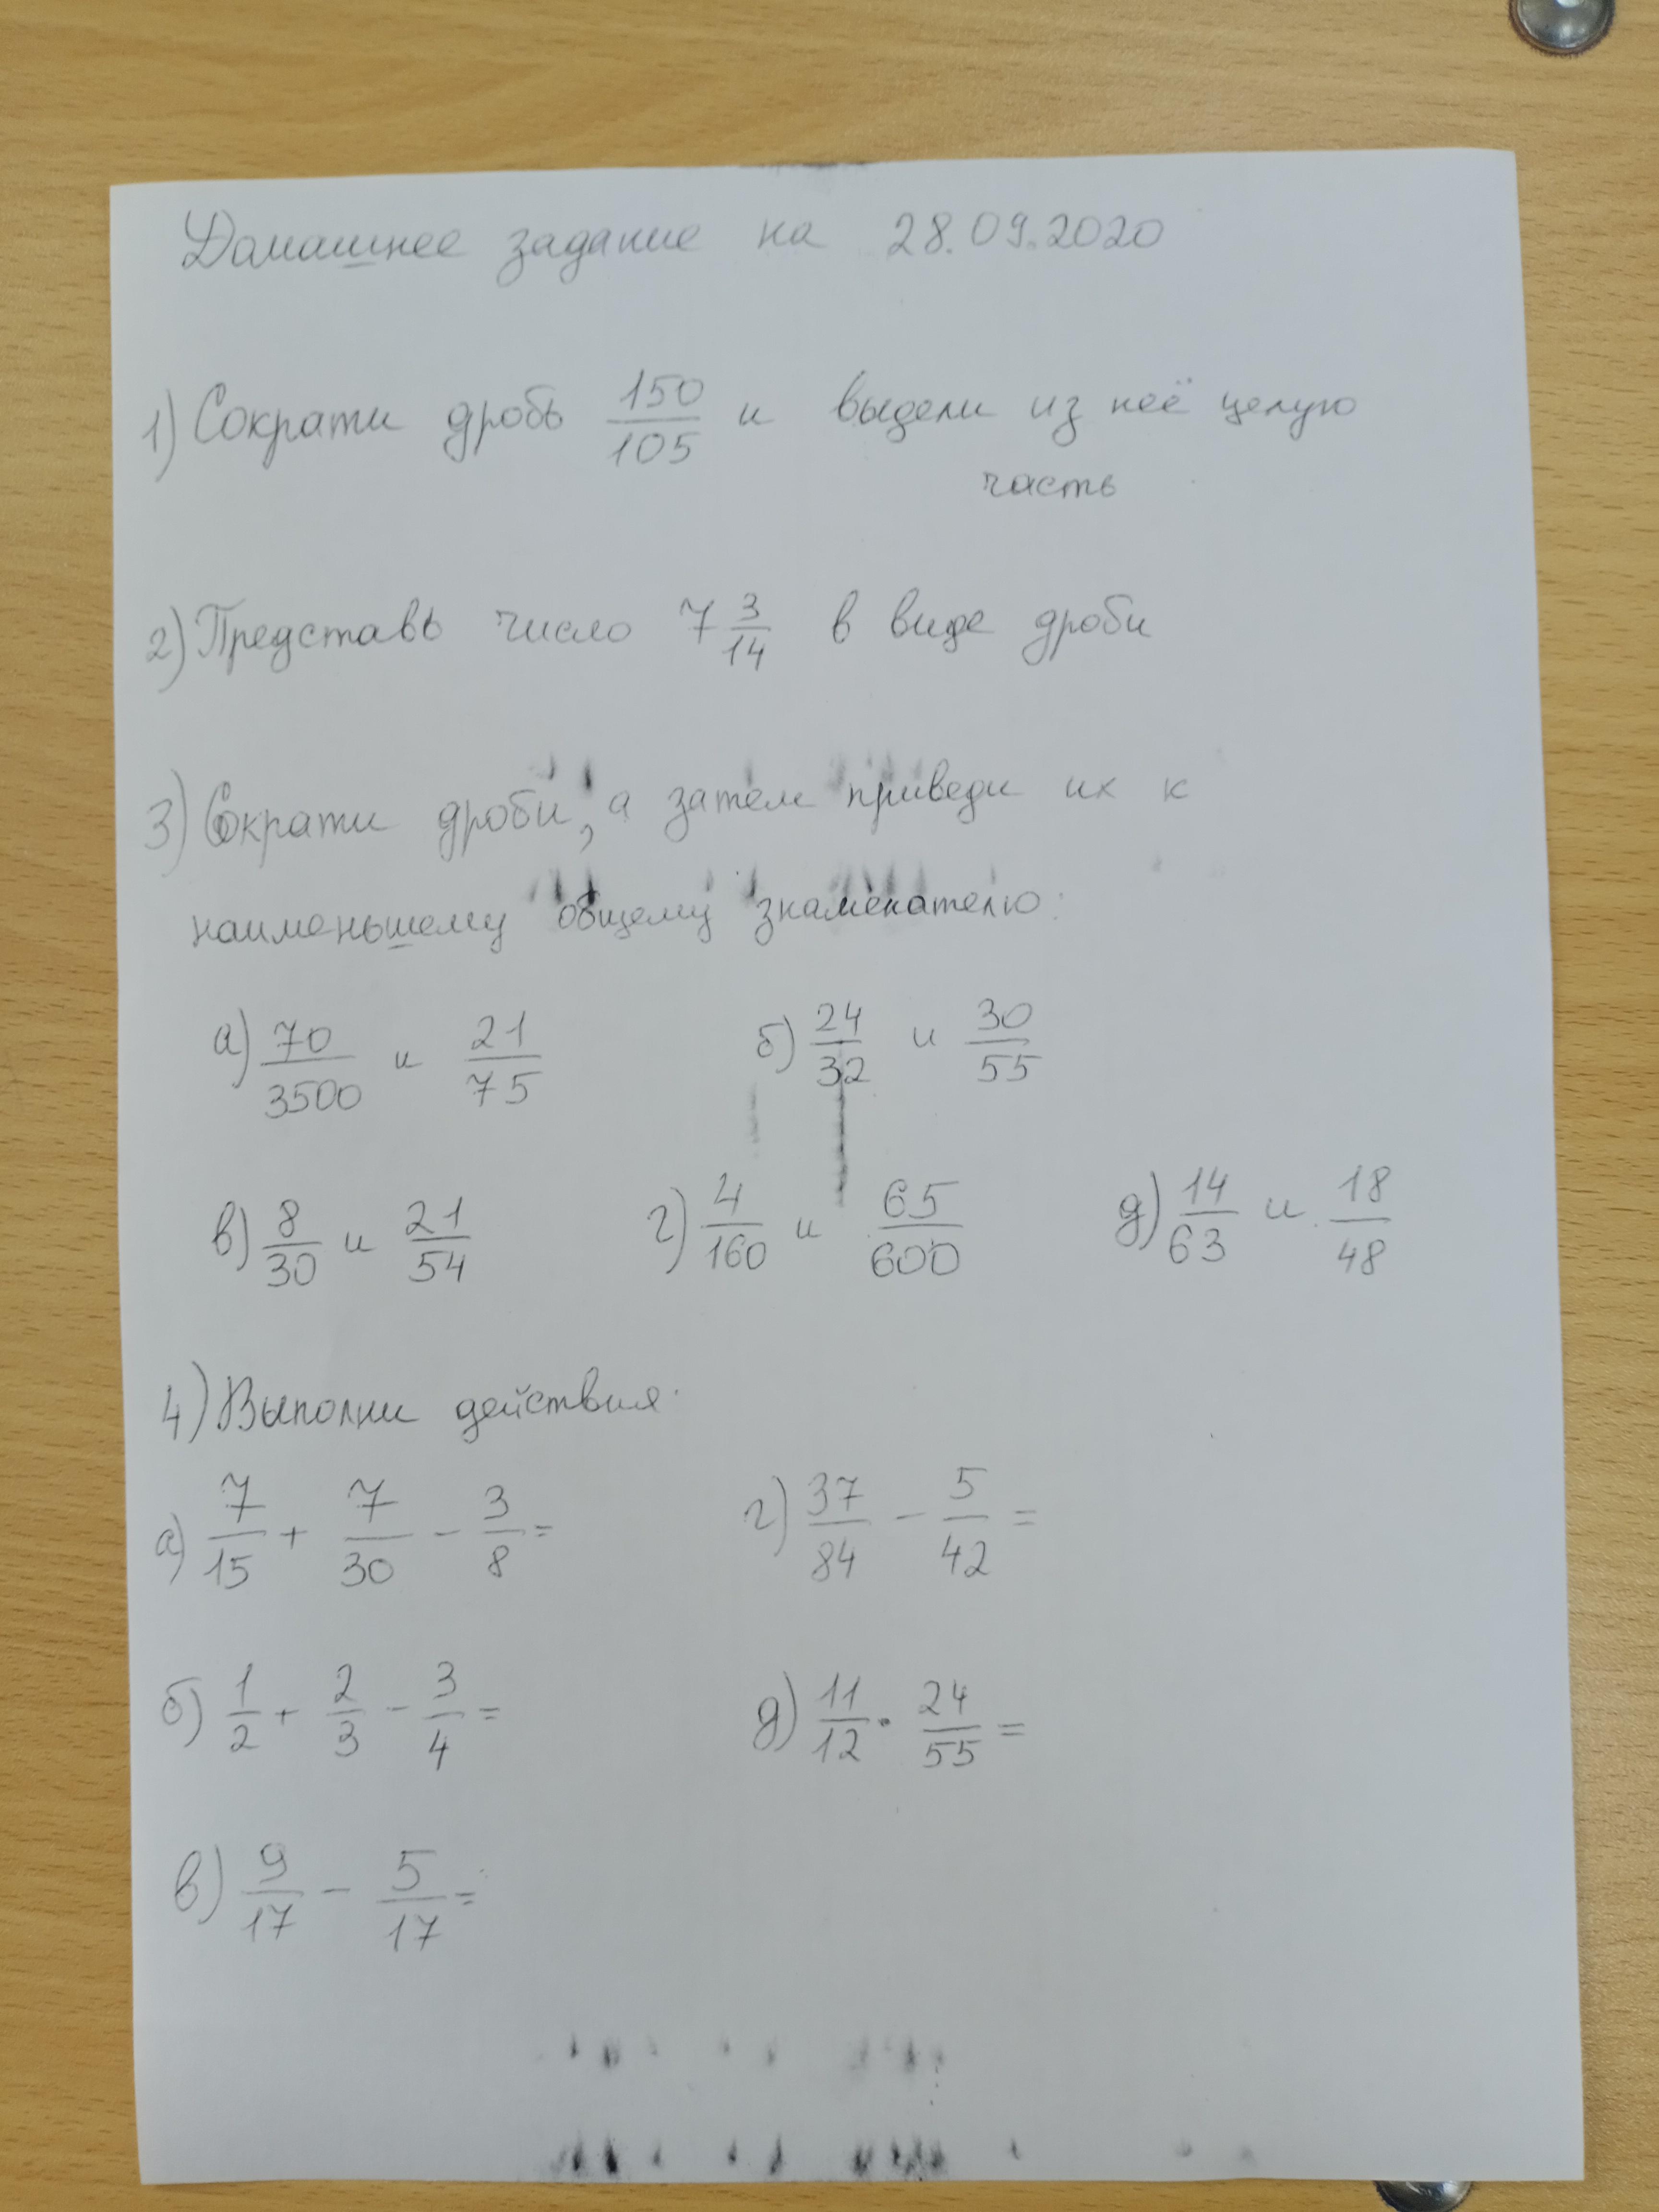 Домашнее задание на 28.09.2020
1) Сократи дробь 150/105 и выдели из неё целую
часть
2) Представь число 7 3/14 в виде дроби
3) Сократи дроби, а затем приведи их к
наименьшему общему знаменателю:
а) 70/3500 и 21/75 б) 24/32 и 30/55
в) 8/30 и 21/54 г) 4/160 и 65/600 д) 14/63 и 18/48
4) Выполни действия
а) 7/15 + 7/30 - 3/8 = г) 37/84 - 5/42 =
б) 1/2 + 2/3 - 3/4 = д) 11/12 · 24/55 =
в) 9/17 - 5/17 =